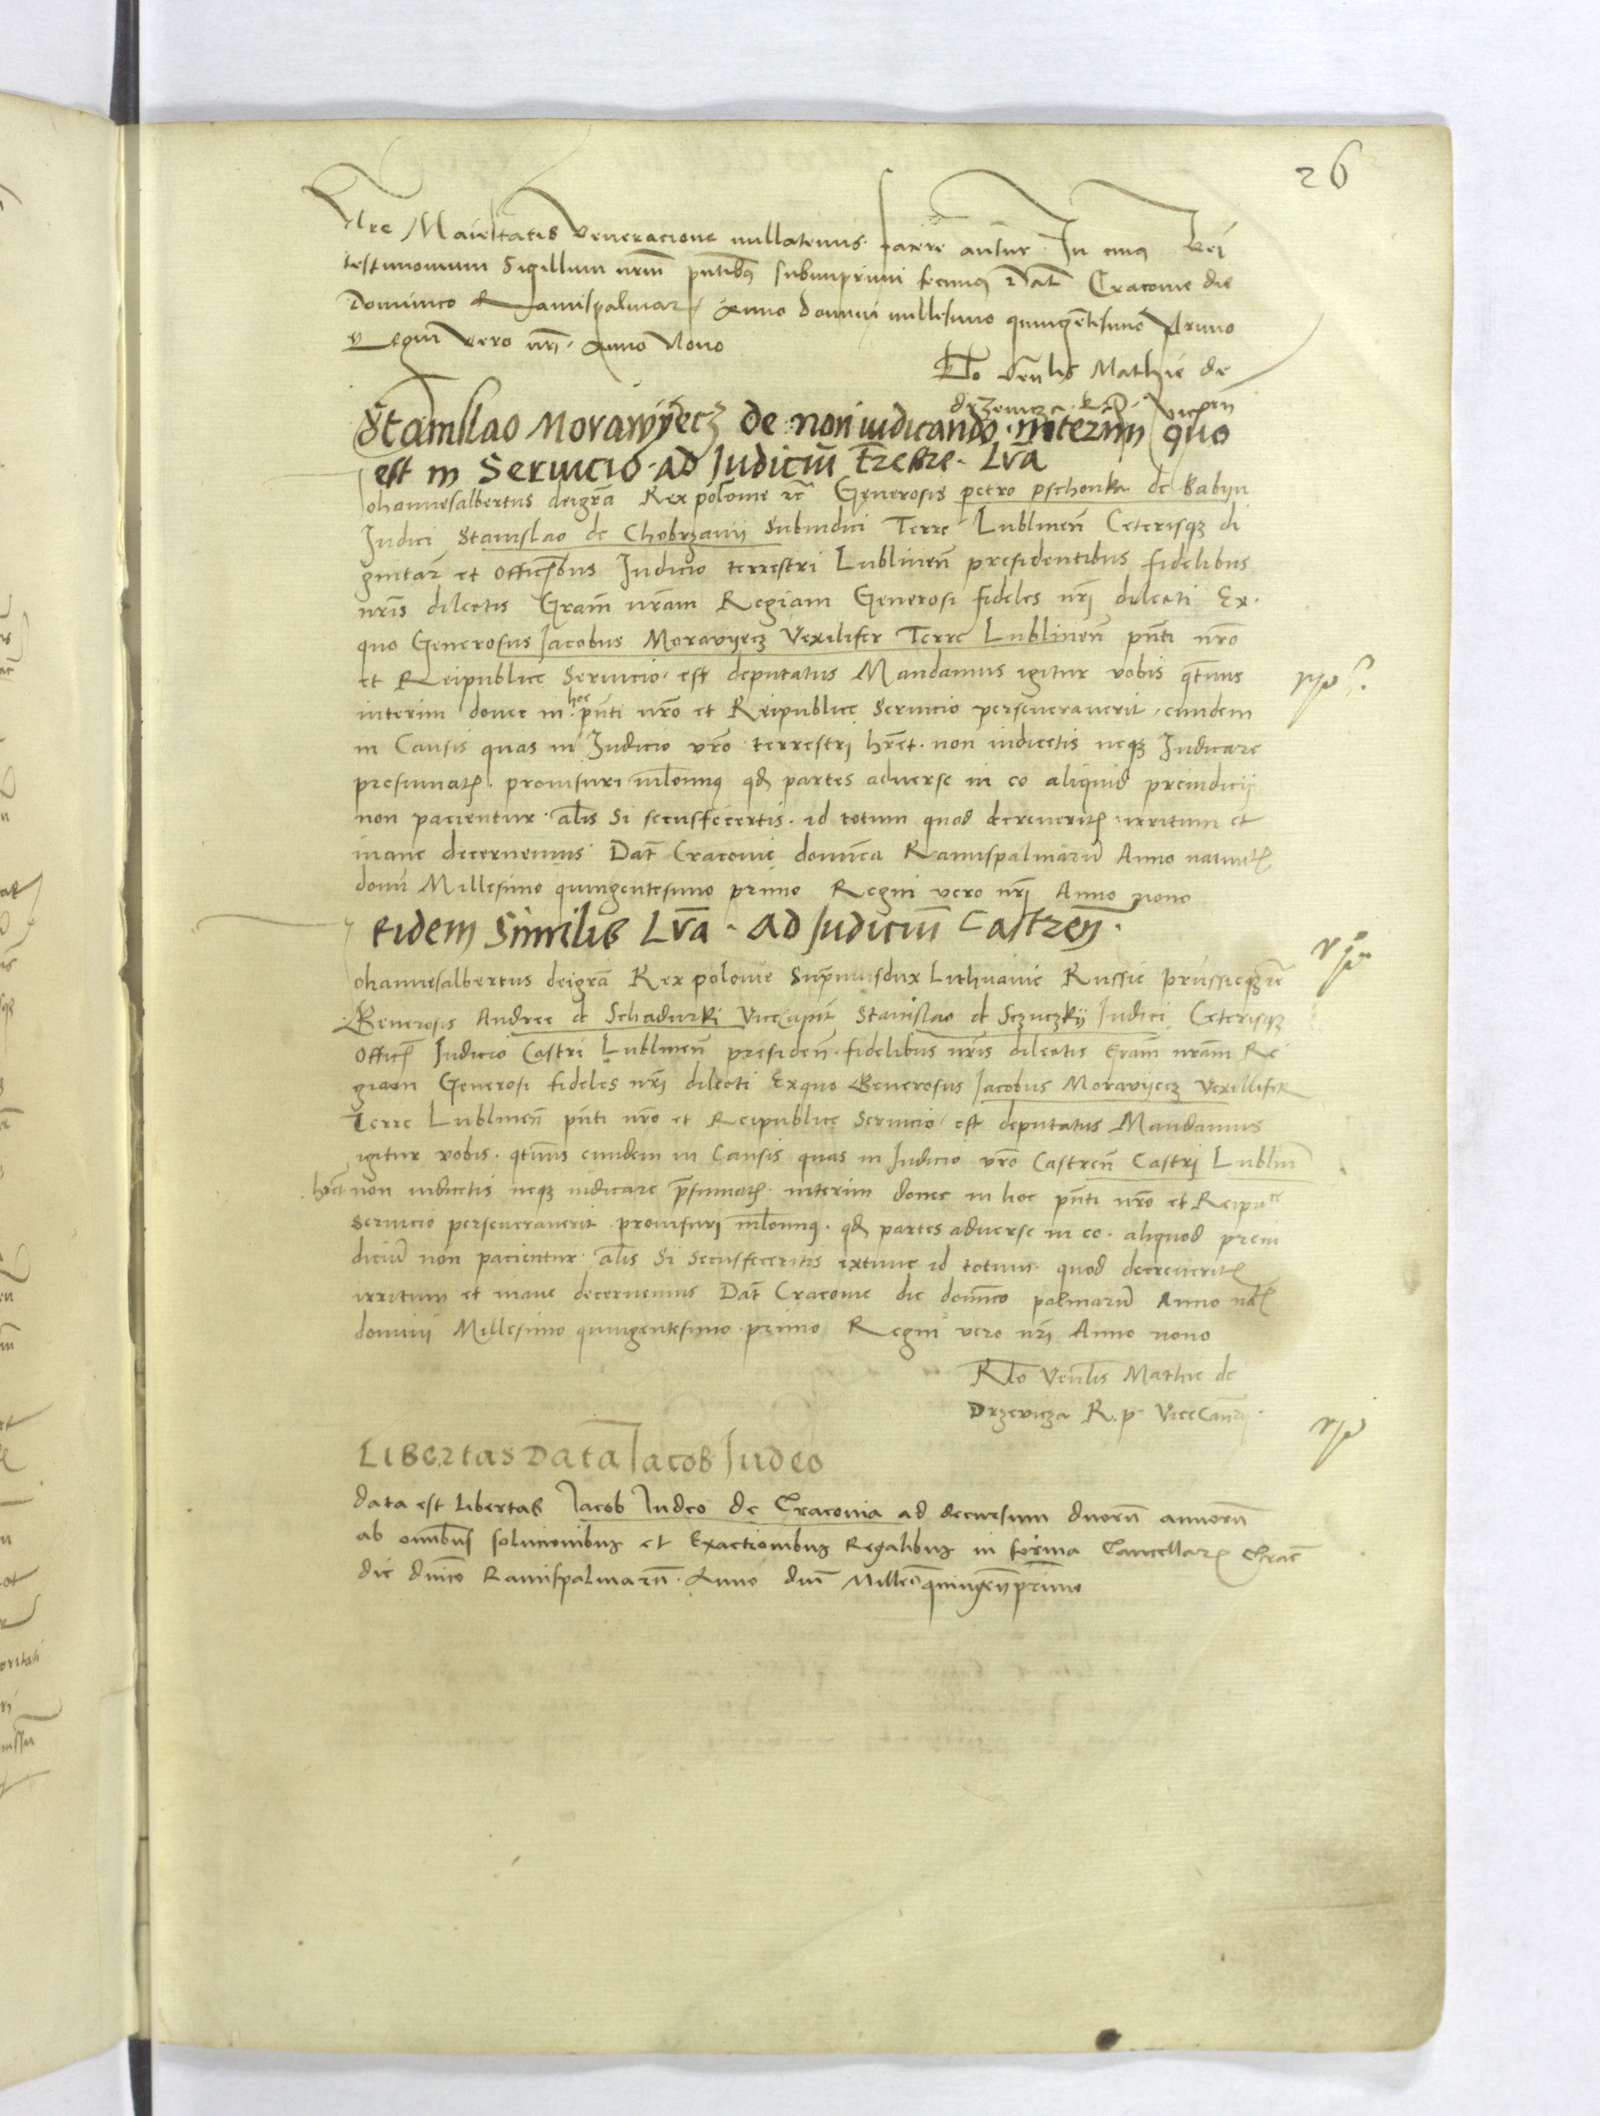 26
Nre Maiestatis veneracione nullatenus facere autur. In cuius Rei
testimonium Sigillum nrm pntibus subimprimi fecimus Dat Cracovie die
Dominico Ramispalmar Anno domini millesimo quingetesimo primo
Regni vero nri Anno Nono
Rlo Venlis Mathie de
drzewicza R P vicecan
Stanislao Morawyecz de non iudicando interim quo
est in Servicio ad Judiciu trestre Lra
Johannesalbertus deigra Rex polonie etc Generosis petro pschonka de Babyn
Judici Stanislao de Chobrzanii Subiudici Terre Lublinen Ceterisqz di
gnitar et officialibus Judicio terrestri Lublinen presidentibus fidelibus
nris dilectis Gram nram Regiam Generosi fideles nri dilecti Ex
quo Generosus Jacobus Moravyecz Vexilifer Terre Lublinen pnti nro
et Reipublice Servicio est deputatus Mandamus igitur vobis qtenus
interim donec in hoc pnti nro et Reipublice Servicio perseveraverit eundem
in Causis quas in Judicio vro terrestri hret non iudicetis neqz Judicare
presumatis provisuri inleonus qd partes adverse in eo aliquid preiudicij
non pacientur alis Si secusfecertis id totum quod decreveritis irritum et
inane decernemus Dat Cracovie dominica Ramispalmaru Anno nativit
domi Millesimo quingentesimo primo Regni vero nri Anno nono
Eidem Similis Lra Ad Judiciu Castren
Johannesalbertus deigra Rex polonie Supremusdux Lithuanie Russie prussieqz etc
Generosis Andree de Schadurki Vicecapit Stanislao de Sczuczky Judici Ceterisqz
Offic Judicio Castri Lublinen presiden fidelibus nris dilectis Gram nram Re
giam Generosi fideles nri dilecti Exquo Generosus Jacobus Moravyecz Vexillifer
Terre Lublinen pnti nro et Reipublice Servicio est deputatus Mandamus
igitur vobis qtenus eundem in Causis quas in Judicio vro Castren Castri Lublin
hret non iudicetis neqz iudicare presumatis interim donec in hoc pnti nro et Reipu ce
Servicio perseveraverit provisuri qd partes adverse in eo aliquod preiu
diciu non pacientur alis Si Secusfeceritis extunc id totum quod decreverit
irritum et inane decernemus Dat Cracovie die dominico palmaru Anno
domini Millesimo quingentesimo primo Regni vero nri Anno nono
Rlo Venlis Mathie de
Drzevicza R. p. ViceCan
Libertas Data Jacob Judeo
data est libertas Jacob Judeo de Cracovia ad decursum duorum annorum
ab omnibus solucionibus et Exactionibus Regalibus in forma Cancellar Crac
die dnico Ramispalmarum Anno dni Milleo quingen primo